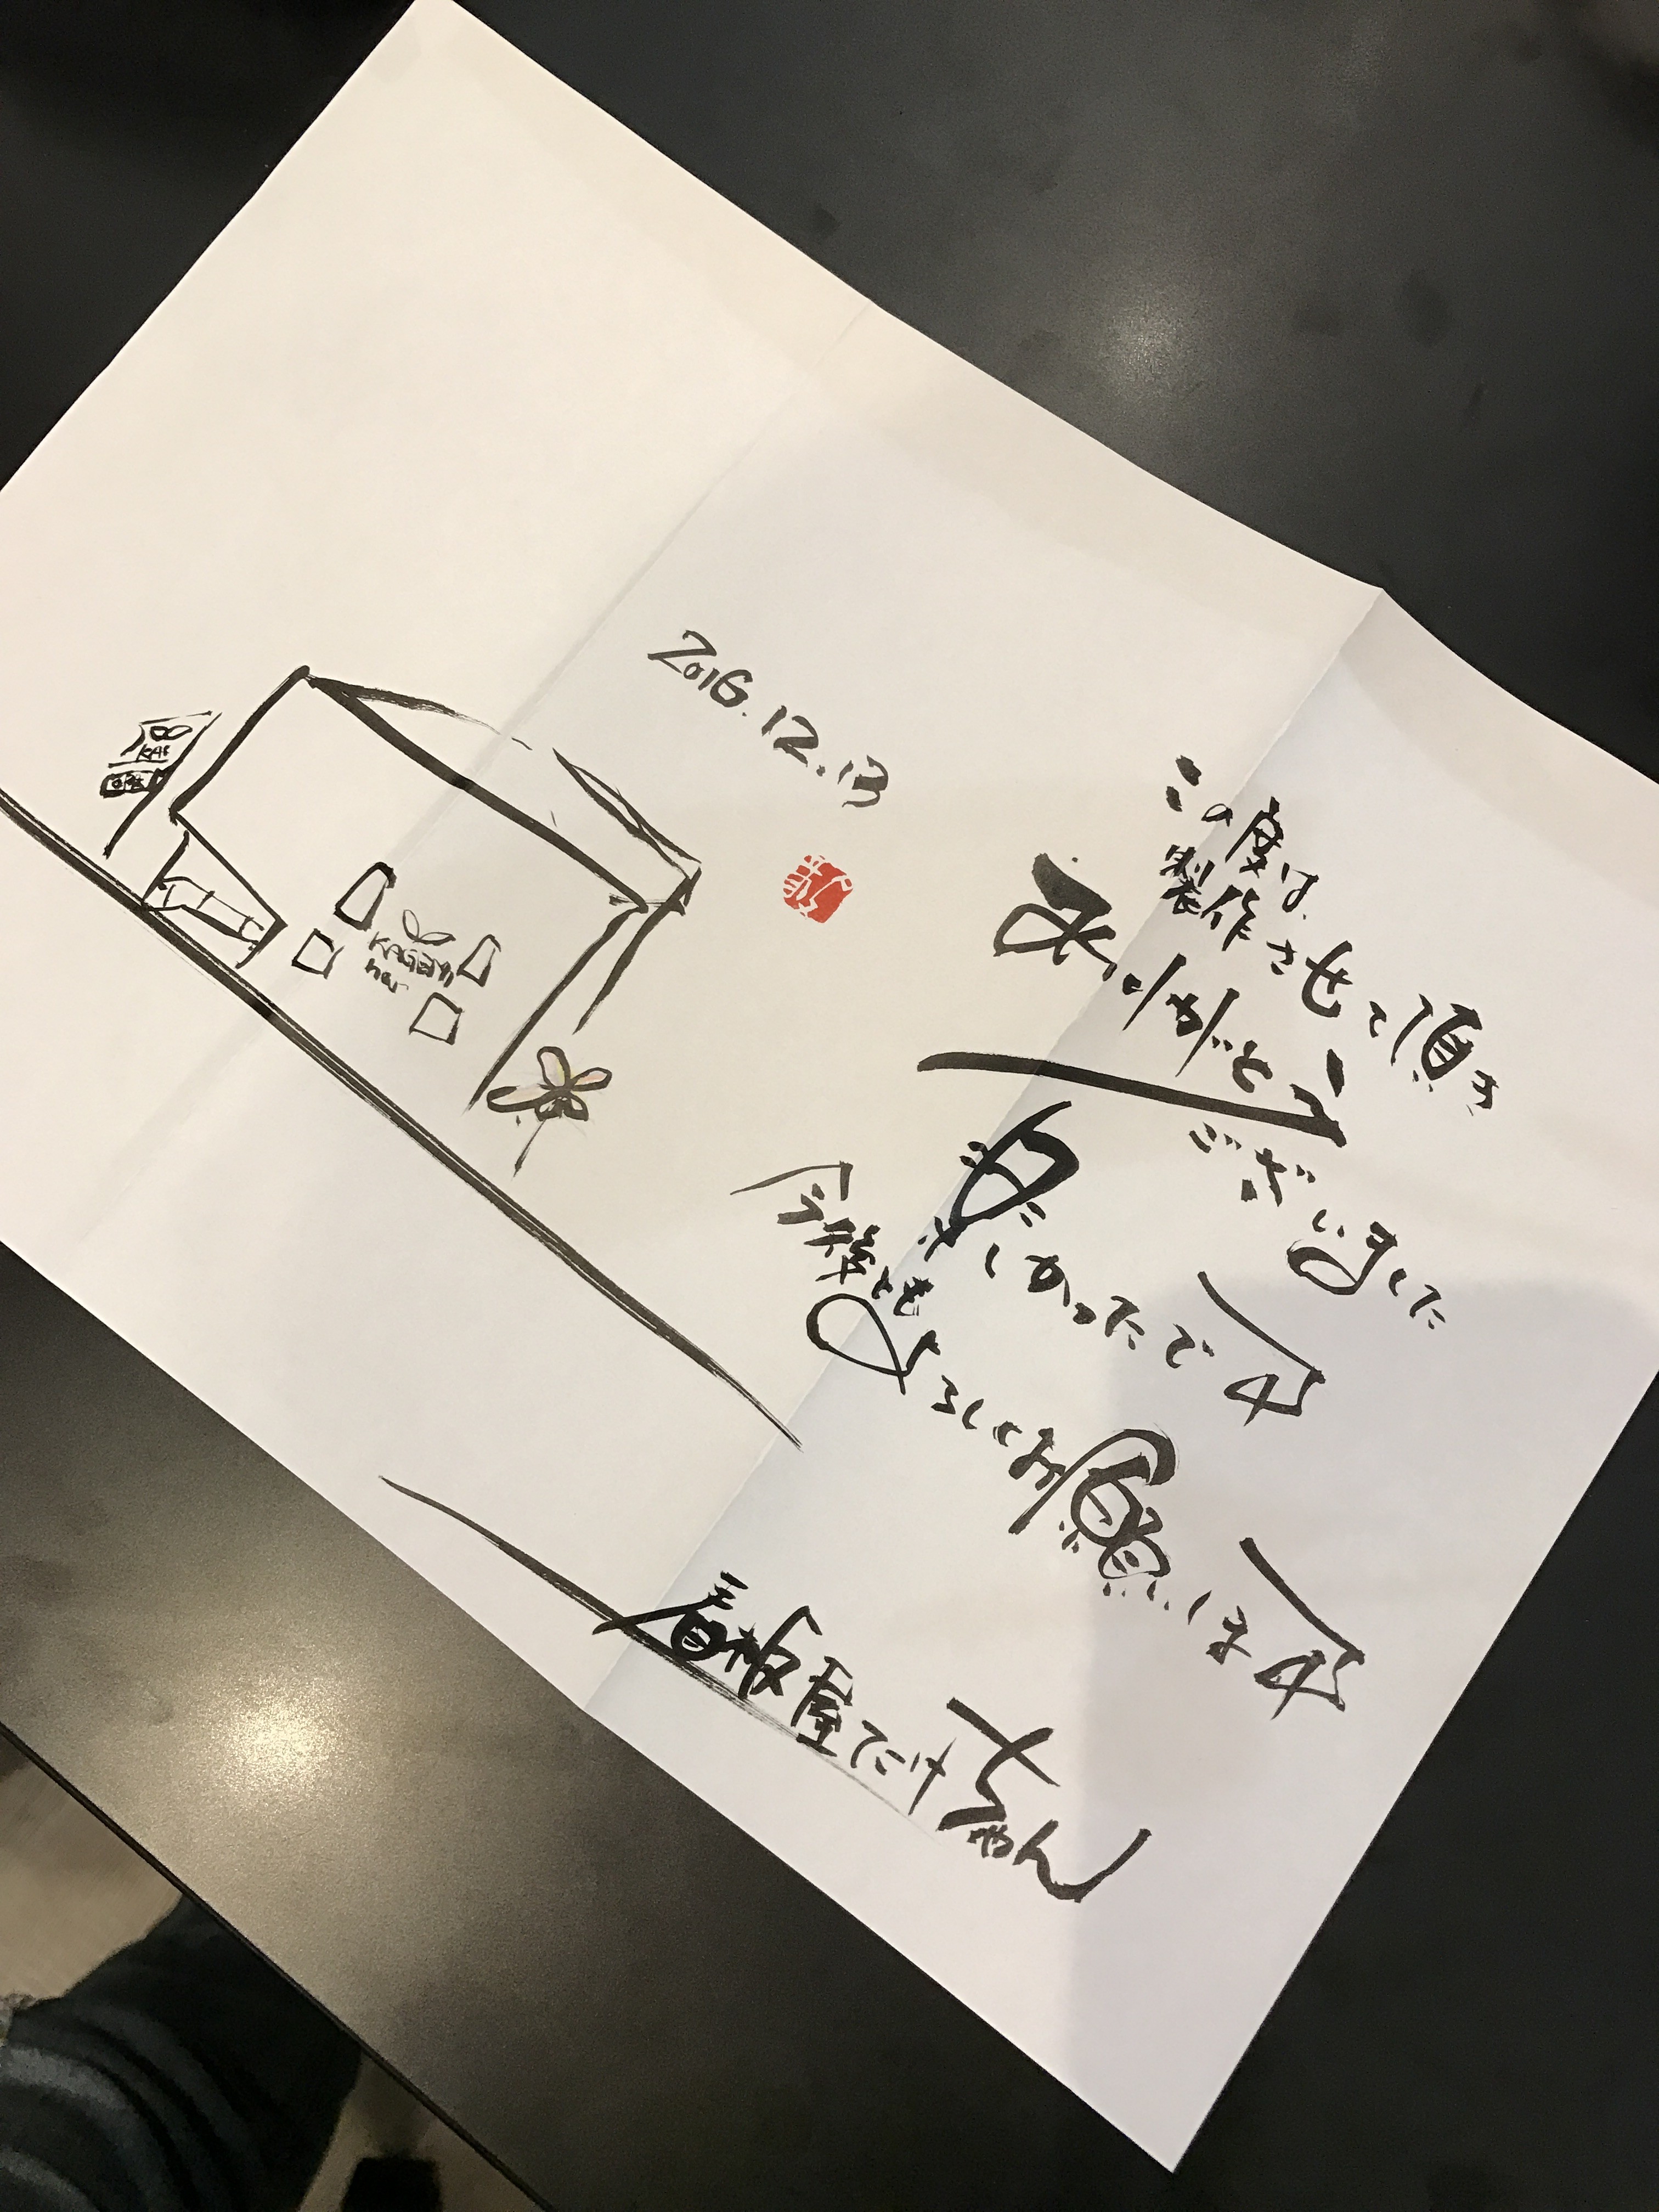 この度は、
製作させて頂き
ありがとう
ございました
楽しかったです
今後ともよろしくお願いします
看板屋たけちゃん
2016.12.13